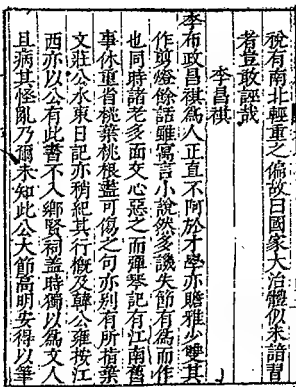 稅有南北輕重之偏故曰國家大治體似未諳習
者豈敢誣哉
李昌祺
李布政昌祺爲人正直不阿於才學亦贍雅少雙其
作剪燈餘話雖寓言小說然多譏失節有爲而作
也同時諸老多面交心惡之而彈琴記有江南舊
事休重省桃葉桃根盡可傷之句亦别有所指葉
文莊公水東日記亦稍紀其行槪及韓公雍按江
西亦以公有此書不入鄉賢祠盖時獨以爲文人
且病其怪亂乃爾未知此公大節高明安得以筆